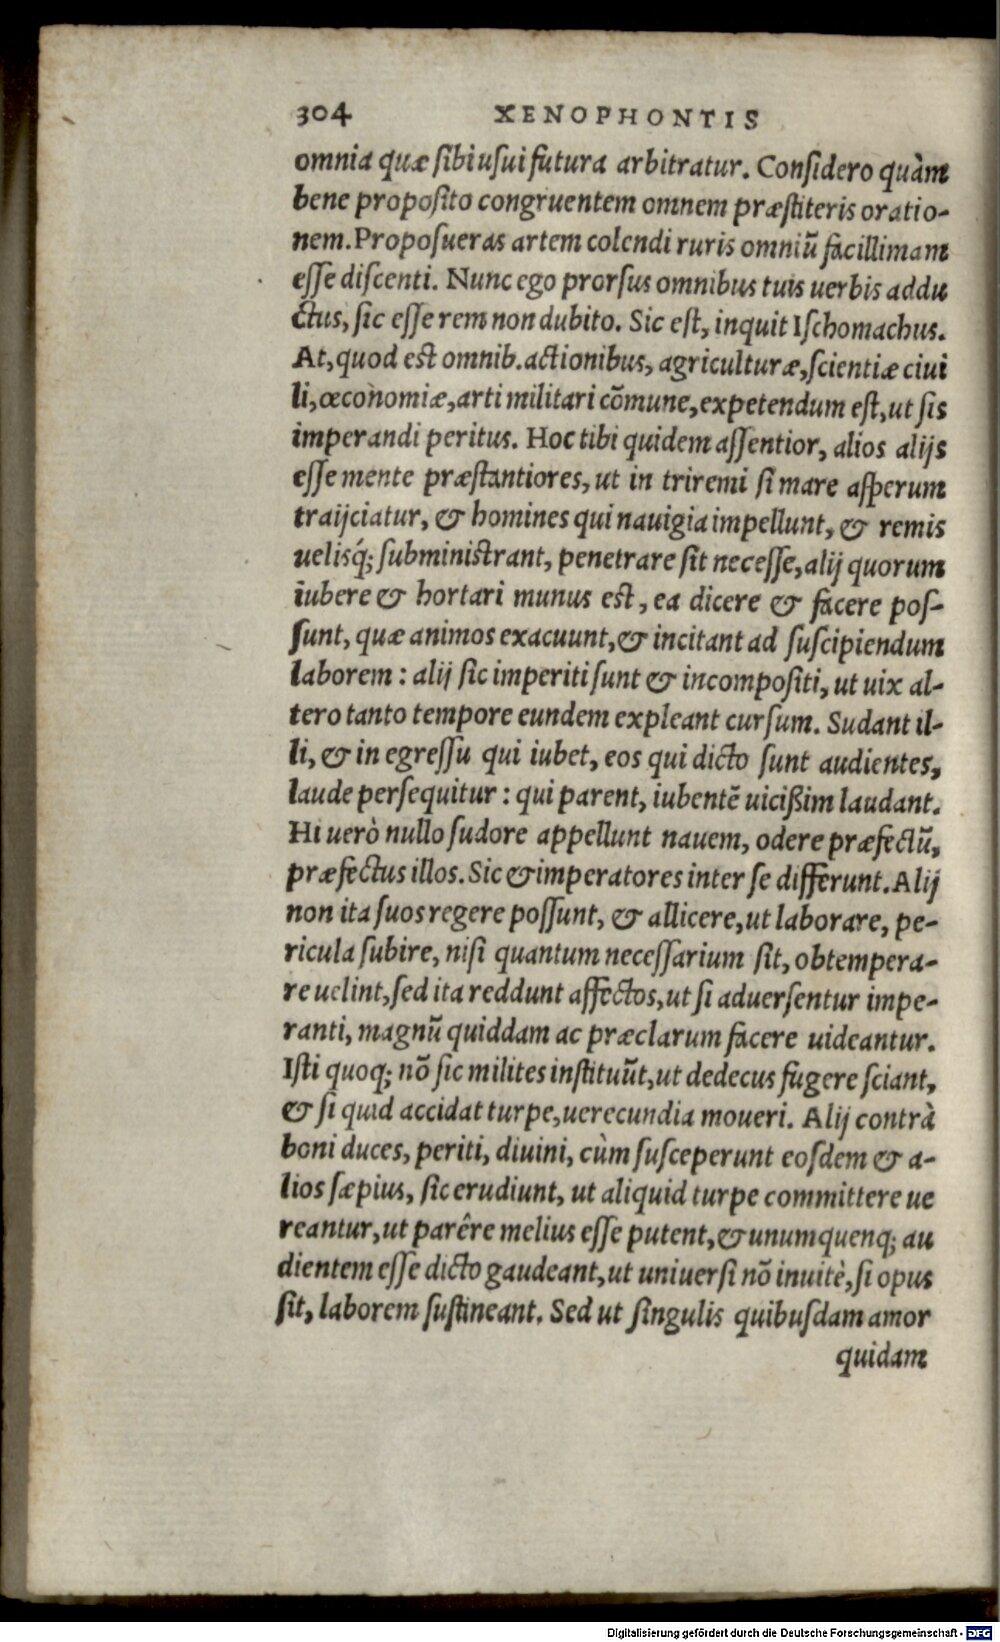 304 XENOPHONTIS
omnia quæ sibi usui futura arbitratur. Considero quàm
bene proposito congruentem omnem præstiteris oratio-
nem. Proposueras artem colendi ruris omniũ facillimam
esse discenti. Nunc ego prorsus omnibus tuis uerbis addu
ctus, sic esse rem non dubito. Sic est, inquit Ischomachus.
At, quod est omnib. actionibus, agriculturæ, scientiæ ciui
li, œconomiæ, arti militari cõmune, expetendum est, ut sis
imperandi peritus. Hoc tibi quidem assentior, alios alijs
esse mente præstantiores, ut in triremi si mare asperum
traijciatur, & homines qui nauigia impellunt, & remis
uelisq́; subministrant, penetrare sit necesse, alij quorum
iubere & hortari munus est, ea dicere & facere pos-
sunt, quæ animos exacuunt, & incitant ad suscipiendum
laborem : alij sic imperiti sunt & incompositi, ut uix al-
tero tanto tempore eundem expleant cursum. Sudant il-
li, & in egressu qui iubet, eos qui dicto sunt audientes,
laude persequitur : qui parent, iubentẽ uicißim laudant.
Hi uerò nullo sudore appellunt nauem, odere præfectũ,
præfectus illos. Sic & imperatores inter se differunt. Alij
non ita suos regere possunt, & allicere, ut laborare, pe-
ricula subire, nisi quantum necessarium sit, obtempera-
re uelint, sed ita reddunt affectos, ut si aduersentur impe-
ranti, magnũ quiddam ac præclarum facere uideantur.
Isti quoq; nõ sic milites instituũt, ut dedecus fugere sciant,
& si quid accidat turpe, uerecundia moueri. Alij contrà
boni duces, periti, diuini, cùm susceperunt eosdem & a-
lios sæpius, sic erudiunt, ut aliquid turpe committere ue
reantur, ut parêre melius esse putent, & unumquenq; au
dientem esse dicto gaudeant, ut uniuersi nõ inuitè, si opus
sit, laborem sustineant. Sed ut singulis quibusdam amor
quidam
Digitalisierung gefördert durch die Deutsche Forschungsgemeinschaft - DFG